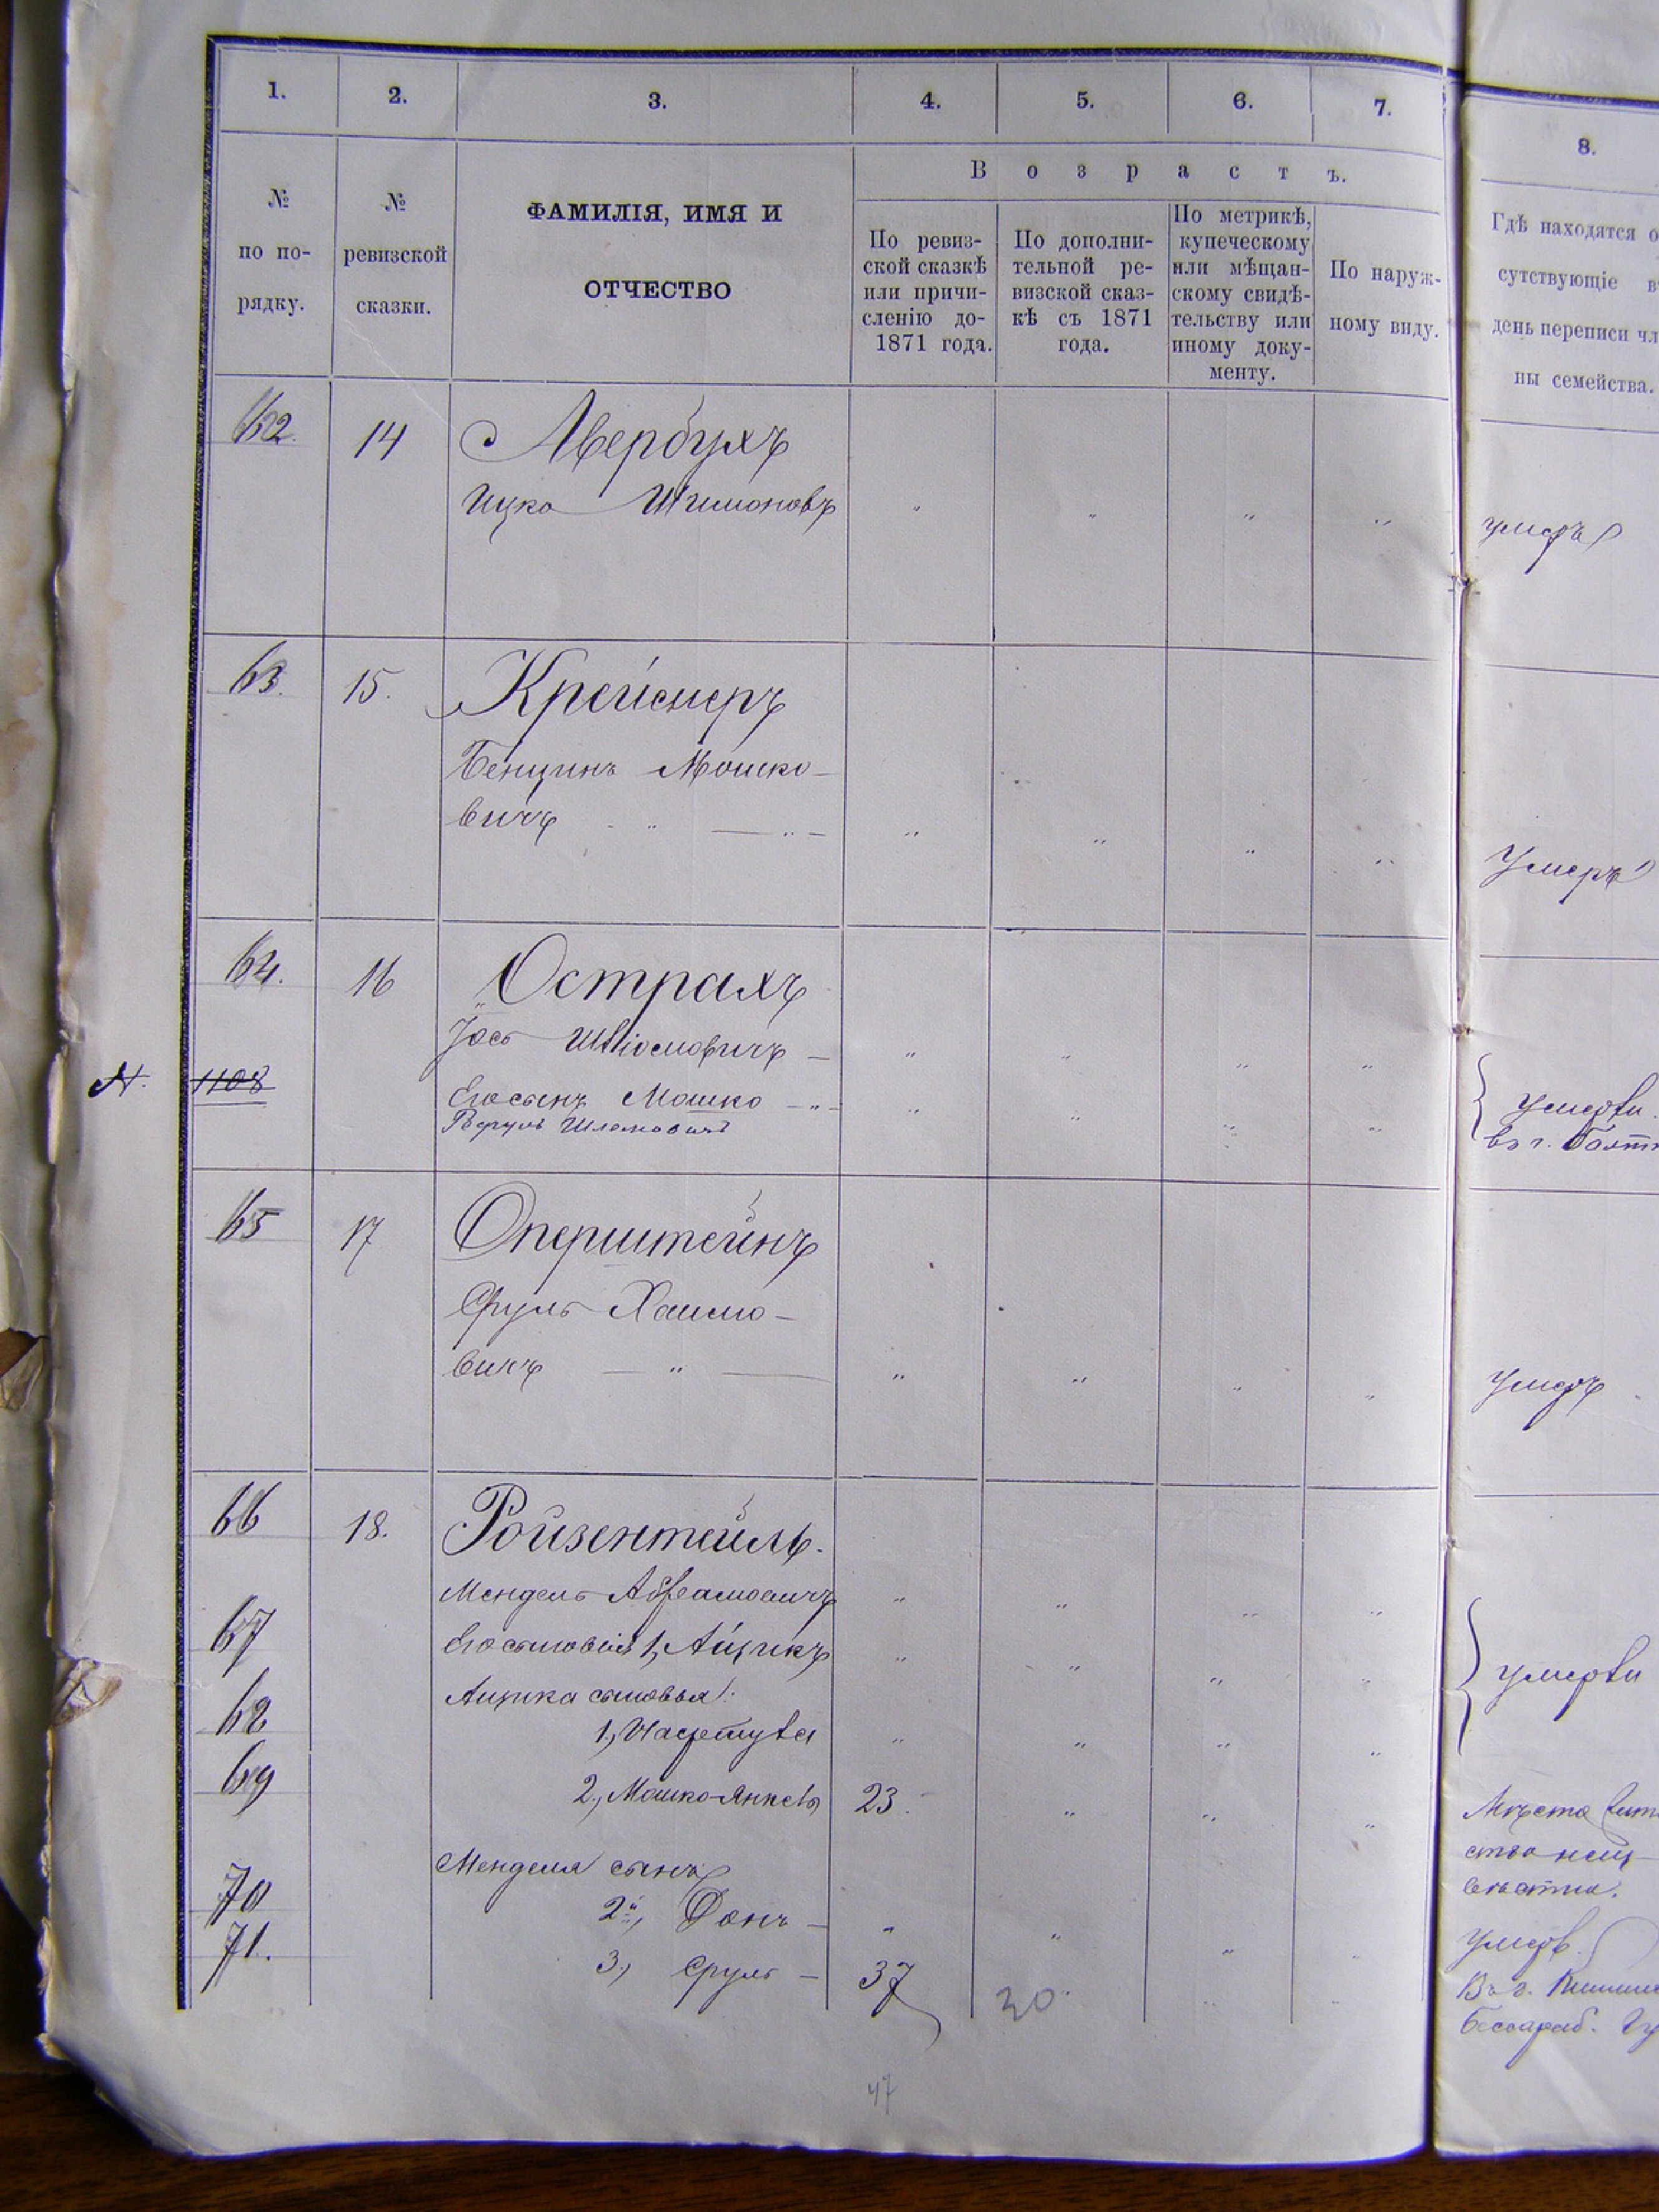 1. 2. 3. 4. 5. 6. 7. 8.
№ по по-рядку.
№ ревизской сказки.
ФАМИЛІЯ, ИМЯ И
ОТЧЕСТВО
Возрастъ.
По ревиз-
ской сказкѣ
или причи-
сленію до-
1871 года.
По дополни-
тельной ре-
визской сказ-
кѣ съ 1871
года.
По метрикѣ,
купеческому
или мѣщан-
скому свидѣ-
тельству или
иному доку-
менту.
По наруж-
ному виду.
Гдѣ находятся о
сутствующіе в
день переписи чл
ны семейства.
62. 14 Авербухъ
Ицко Шимоновъ " " " " умеръ
63. 15. Крейсмеръ
Бенцинъ Мошко-
вичъ " " " " Умеръ
64. 16 Острахъ
Іось Шліомовичъ — " " " "
N. 1108 Его сынъ Мошко — " " " " умерли
Шлемовичъ въ г. Балт
65 17 Оперштейнъ
Сруль Хаимо-
вичъ — " — " " " " умеръ
66 18. Ройзентейль.
Мендель Абрамовичъ " " " "
67 Его сыновья 1, Айцикъ " " " " умерли
Айцика сыновья:
68 1,
69 2, Мошко-Янкель 23. " " " Мѣсто жит
ства неиз-
вѣстно.
Менделя сынъ
70 2й, Фонъ — " " " " Умеръ
71. 3, Сруль — 37 30. " " Въ г. Кишине
Бессараб. Гу
47